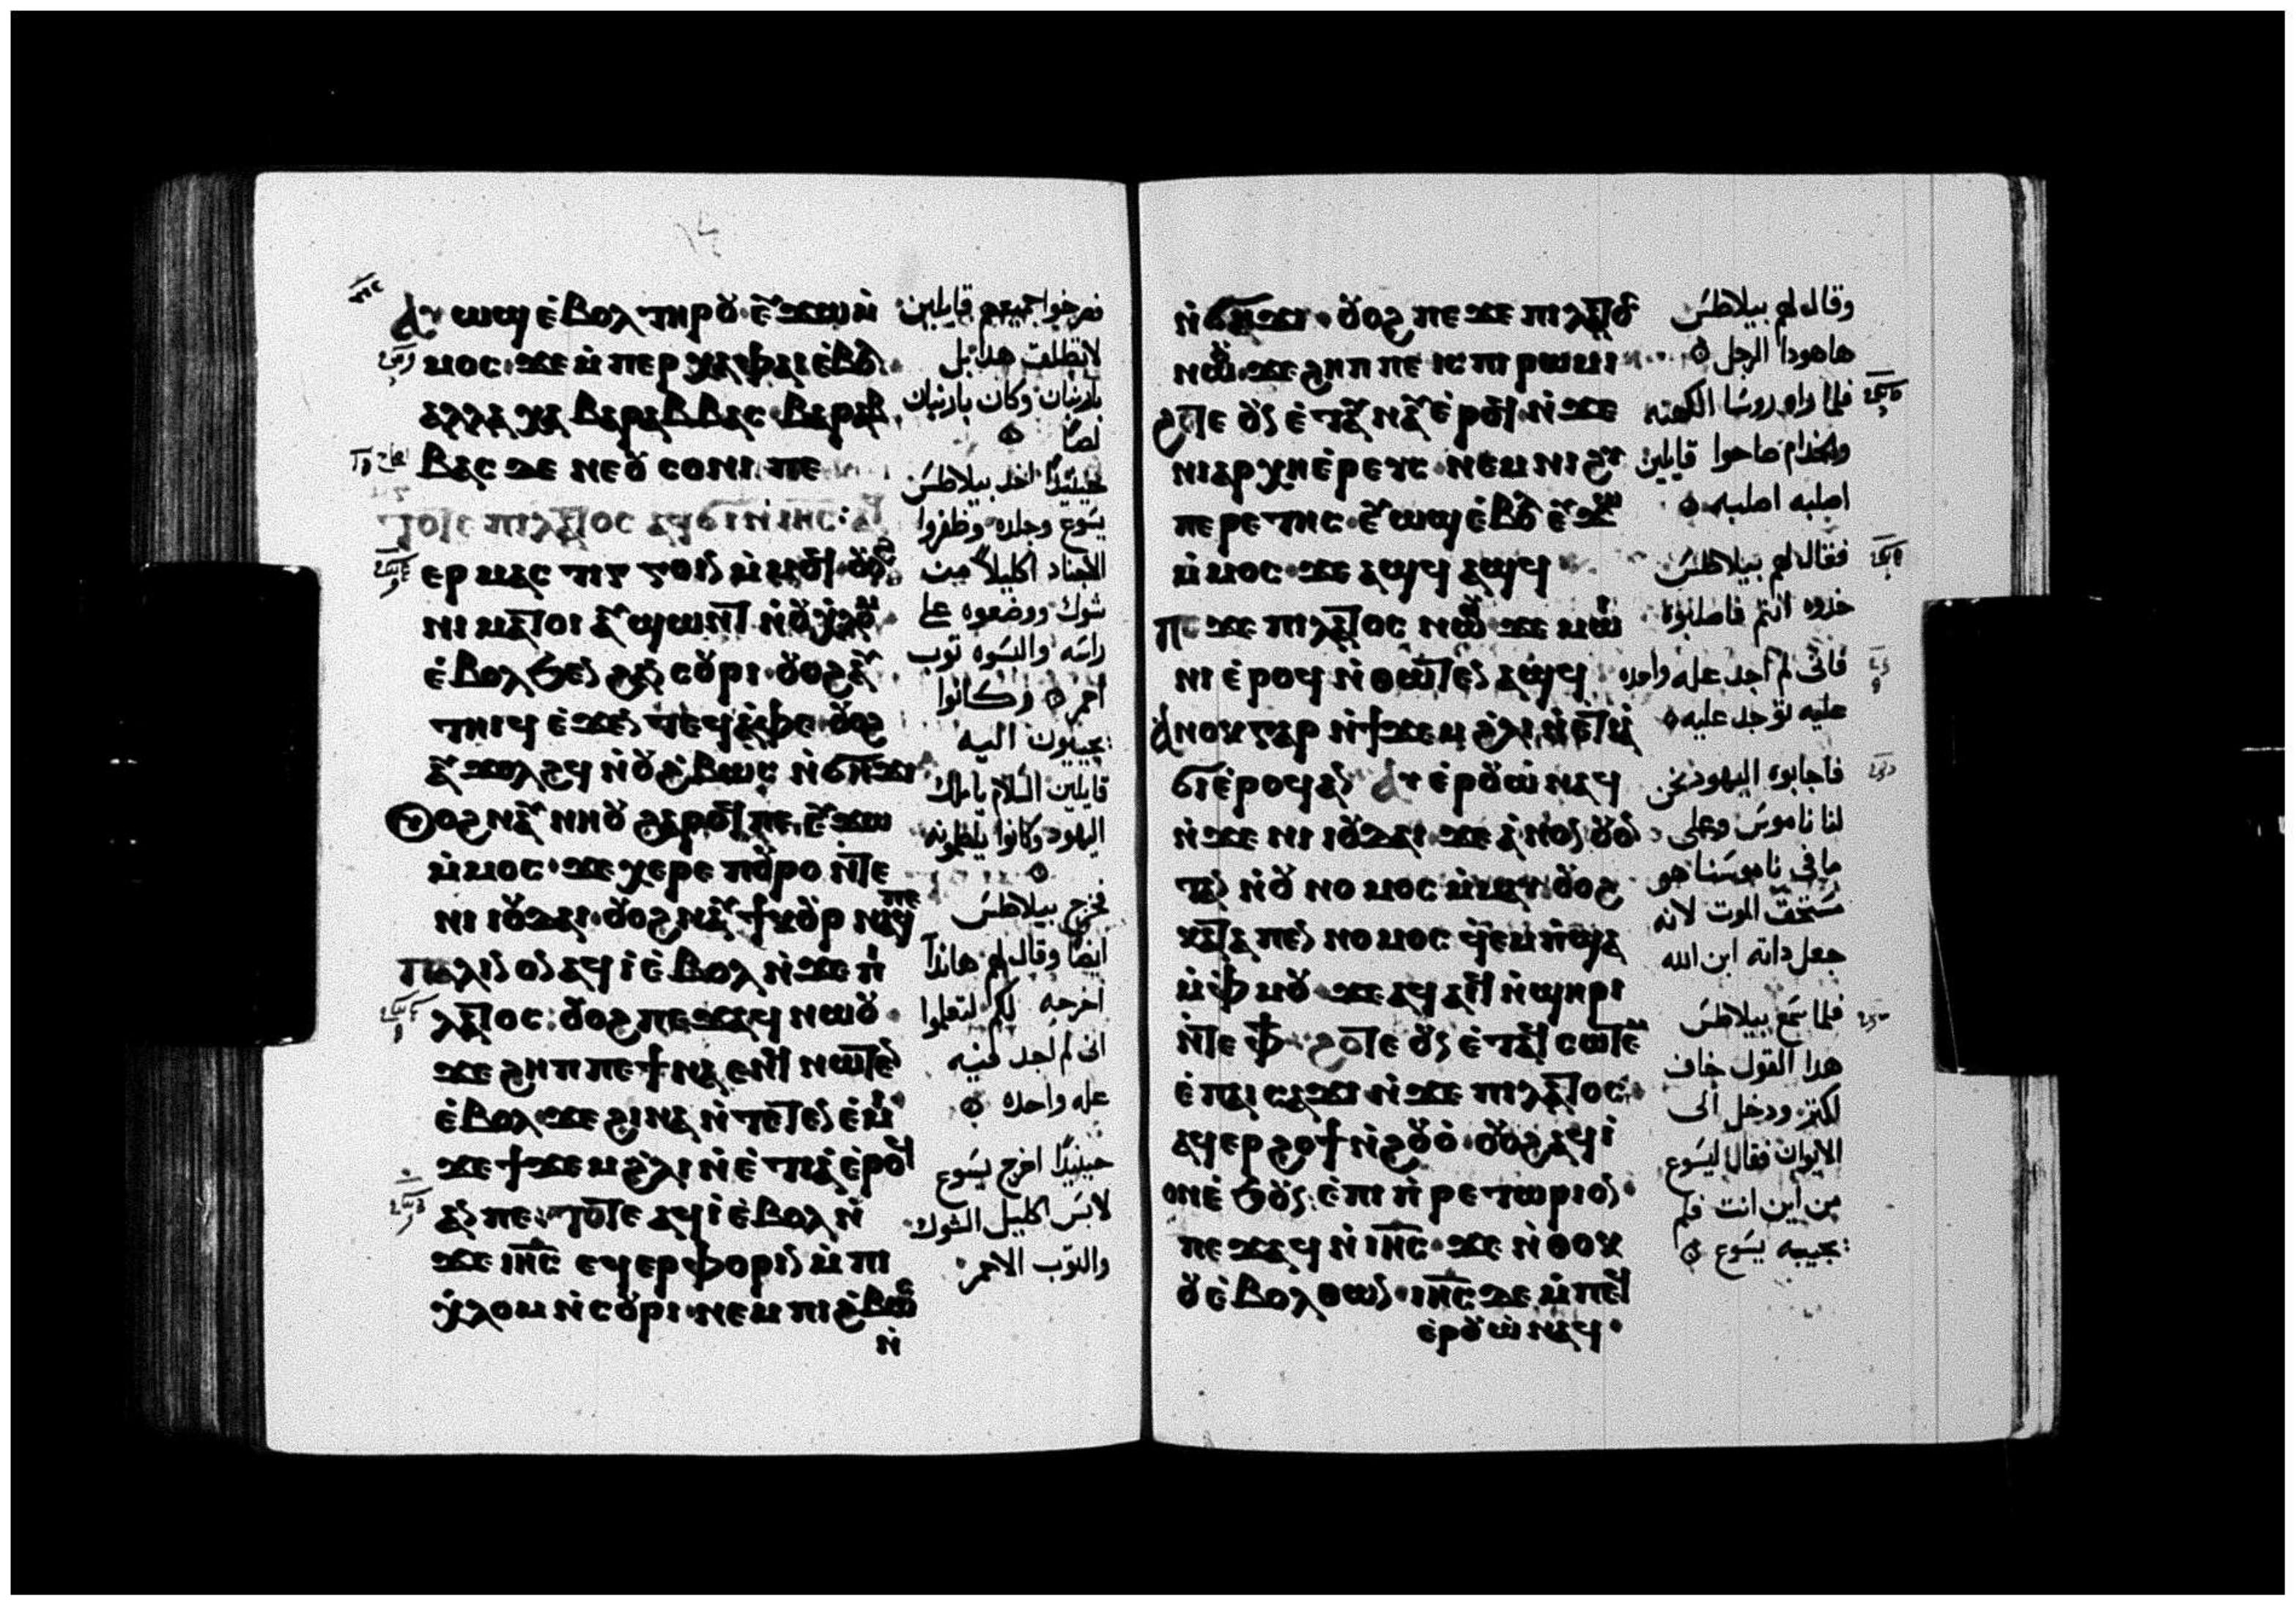 ⲁⲩⲱϣ ⲉ̀ⲃⲟⲗ ⲧⲏⲣⲟⲩ ⲉⲩϫⲱⲙ̀
ⲙⲟⲥ· ϫⲉ ⲙ̀ⲡⲉⲣⲭⲁ ⲫⲁⲓ ⲉ̀ⲃⲟⲗ
ⲁⲗⲗⲁ ⲭⲁ ⲃⲁⲣⲁⲃⲃⲁⲥ· ⲃⲁⲣⲁⲃ
ⲃⲁⲥ ⲇⲉ ⲛⲉ ⲟⲩⲥⲟⲛⲓ ⲡⲉ
ⲧⲟⲧⲉ ⲡⲓⲗⲁⲧⲟⲥ ⲁϥϭⲓ ⲛ̀ⲓⲏⲥ: ⲁϥ
ⲉⲣⲙⲁⲥⲧⲓⲅⲅⲟⲓⲛ ⲙ̀ⲙⲟϥ· ⲟⲩⲟϩ
ⲛⲓⲙⲁⲧⲟⲓ ⲁⲩϣⲱⲛⲧ ⲛ̀ⲟⲩⲭ̀ⲗⲟⲙ
ⲉ̀ⲃⲟⲗϧⲉⲛ ϩⲁⲛⲥⲟⲩⲣⲓ· ⲟⲩⲟϩ ⲁⲩ
ⲧⲏⲓϥ ⲉ̀ϫⲉⲛ ⲧⲉϥⲁ̀ⲫⲉ· ⲟⲩⲟϩ
ⲁⲩϫⲟⲗϩϥ ⲛ̀ⲟⲩϩ̀ⲃⲱⲥ ⲛ̀ϭⲏϫⲓ
ⲟⲩⲟϩ ⲛⲁⲩⲛⲏⲟⲩ ϩⲁⲣⲟϥ ⲡⲉ, ⲉⲩϫⲱ
ⲙ̀ⲙⲟⲥ· ϫⲉ ⲭⲉⲣⲉ ⲡⲟⲩⲣⲟ ⲛ̀ⲧⲉ
ⲛⲓⲓⲟⲩⲇⲁⲓ· ⲟⲩⲟϩ ⲛⲁⲩϯⲕⲟⲩⲣ ⲛⲁϥ ⲡⲉ
ⲡⲁⲗⲓⲛ ⲟⲛ ⲁϥⲓ̀ ⲉ̀ⲃⲟⲗ ⲛ̀ϫⲉ ⲡⲓ
ⲗⲁⲧⲟⲥ: ⲟⲩⲟϩ ⲡⲉϫⲁϥ ⲛⲱⲟⲩ·
ϫⲉ ϩⲏⲡⲡⲉ ϯⲛⲁⲉⲛϥ ⲛⲱⲧⲉⲛ
ⲉ̀ⲃⲟⲗ ϫⲉ ϩⲓⲛⲁ ⲛ̀ⲧⲉⲧⲉⲛⲉ̀ⲙⲓ
ϫⲉ ϯϫⲉⲙ ϩ̀ⲗⲓ ⲛ̀ⲉ̀ⲧⲓⲁ̀ ⲉ̀ⲣⲟϥ
ⲁⲛ ⲡⲉ· ⲧⲟⲧⲉ ⲁϥⲓ̀ ⲉ̀ⲃⲟⲗ ⲛ̀
ϫⲉ ⲓⲏⲥ ⲉϥⲉⲣⲫⲟⲣⲓⲛ ⲙ̀ⲡⲓ
ⲭ̀ⲗⲟⲙ ⲛ̀ⲥⲟⲩⲣⲓ· ⲛⲉⲙ ⲡⲓϩ̀ⲃⲱⲥ
ⲛ̀
فصرخوا جميعهم قايلين
لاتطلت هدا بل
بارنبان وكان بارنبان
لصًا
حينيدًا اخد بيلاطس
يسوع وجلده وظفروا
الاجناد اكليلًا من
شوك ووضعوه على
راسه والبسوه توب
احمر وكانوا
يجييون اليه
قايلين السلام ياملك
اليهود وكانوا يلطمونه
فخرج بيلاطس
ايضًا وقال لهم هاندا
اخرجه لكم لتعلموا
انى لم اجد فيه
عله واحده
حينيدًا اخرج يسوع
لابس اكليل الشوك
والتوب الاحمر
ⲛ̀ϭⲏϫⲓ· ⲟⲩⲟϩ ⲡⲉϫⲉ ⲡⲓⲗⲁⲧⲟⲥ
ⲛⲱⲟⲩ· ϫⲉ ϩⲏⲡⲡⲉ ⲓⲥ ⲡⲓⲣⲱⲙⲓ
ϩⲟⲧⲉ ⲟⲩⲛ ⲉ̀ⲧⲁⲩⲛⲁⲩ ⲉ̀ⲣⲟϥ ⲛ̀ϫⲉ
ⲛⲓⲁⲣⲭⲏⲉ̀ⲣⲉⲩⲥ· ⲛⲉⲙ ⲛⲓϩⲩ
ⲡⲉⲣⲉⲧⲏⲥ· ⲉⲩⲱϣ ⲉ̀ⲃⲟⲗ ⲉⲩϫⲱ
ⲙ̀ⲙⲟⲥ· ϫⲉ ⲁϣϥ ⲁϣϥ
ⲡⲉϫⲉ ⲡⲓⲗⲁⲧⲟⲥ ⲛⲱⲟⲩ ϫⲉ ⲙⲱⲓ
ⲛⲓ ⲉ̀ⲣⲟϥ ⲛ̀ⲑⲱⲧⲉⲛ ⲁϣϥ
ⲁⲛⲟⲕ ⲅⲁⲣ ⲛ̀ϯϫⲉⲙ ϩ̀ⲗⲓ ⲛ̀ⲉⲧⲓⲁ̀
ϭⲓ ⲉ̀ⲣⲟϥ ⲁⲛ ⲁⲩⲉ̀ⲣⲟⲩⲱ̀ ⲛⲁϥ
ⲛ̀ϫⲉ ⲛⲓⲓⲟⲩⲇⲁⲓ ϫⲉ ⲁ̀ⲛⲟⲛ ⲟⲩⲟⲛ
ⲧⲁⲛ ⲛ̀ⲟⲩⲛⲟⲙⲟⲥ ⲙ̀ⲙⲁⲩ· ⲟⲩⲟϩ
ⲕⲁⲧⲁ ⲡⲉⲛⲛⲟⲙⲟⲥ ϥ̀ⲉⲙⲡ̀ϣⲁ
ⲙ̀ⲫ̀ⲙⲟⲩ· ϫⲉ ⲁϥⲁⲓϥ ⲛ̀ϣⲏⲣⲓ
ⲛ̀ⲧⲉ ⲫϯ· ϩⲟⲧⲉ ⲟⲩⲛ ⲉ̀ⲧⲁϥⲥⲱⲧⲉⲙ
ⲉ̀ⲡⲁⲓⲥⲁϫⲓ ⲛ̀ϫⲉ ⲡⲓⲗⲁⲧⲟⲥ·
ⲁϥⲉⲣϩⲟϯ ⲛ̀ϩⲟⲩⲟ̀· ⲟⲩⲟϩ ⲁϥⲓ̀
ⲟⲛ ⲉ̀ϧⲟⲩⲛ ⲉ̀ⲡⲓⲡ̀ⲣⲉⲧⲱⲣⲓⲟⲛ·
ⲡⲉϫⲁϥ ⲛ̀ⲓⲏⲥ· ϫⲉ ⲛ̀ⲑⲟⲕ
ⲟⲩ ⲉ̀ⲃⲟⲗ ⲑⲱⲛ· ⲓⲏⲥ ⲇⲉ ⲙ̀ⲡⲉϥ
ⲉⲣⲟⲩⲱ̀ ⲛⲁϥ·
وقال لهم بيلاطس
هاهودا الرجل
فلما راوه روسا الكهنه
والخدام صاحوا قايلين
اصلبه اصلبه
فقال لهم بيلاطس
خدوه انتم فاصلبوه
فانى لم اجد عله واحده
عليه توجد عليه
فاجابوه اليهود نحن
لنا ناموس وعلى
ما فى ناموسنا هو
مستحق الموت لانه
جعل داته ابن الله
فلما سمع بيلاطس
هدا القول خاف
لكتر ودخل الى
الايوان فقال ليسوع
من اين انت فلم
يجيبه يسوع